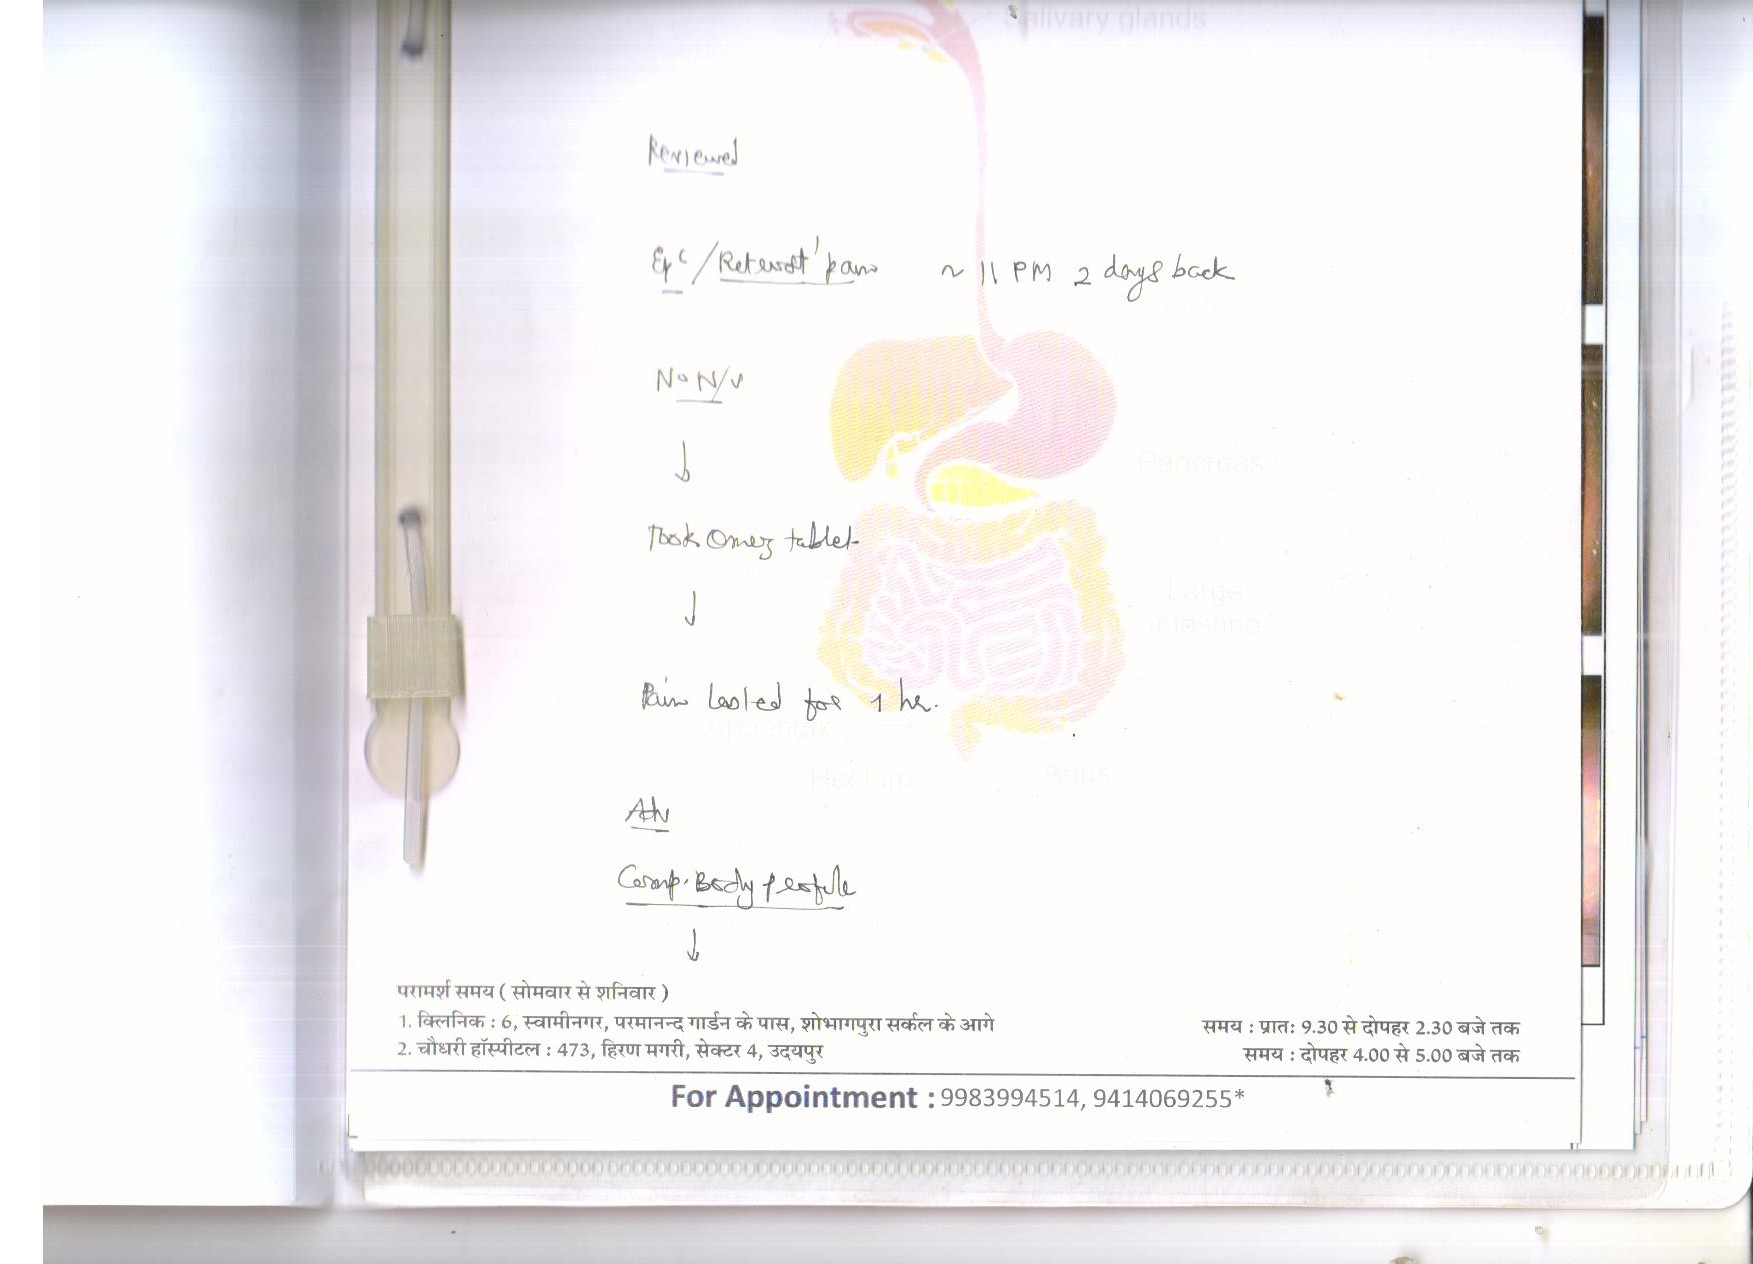 Salivary glands
Reviewed
Epc/Retrost' pain ~ 11 PM 2 days back
No N/V
↓
Pancreas
Took Omez tablet
↓
Large
intestine
Pain lasted for 1 hr.
Appendix
Rectum Anus
Adv
Comp. Body profile
↓
परामर्श समय ( सोमवार से शनिवार )
1. क्लिनिक : 6, स्वामीनगर, परमानन्द गार्डन के पास, शोभागपुरा सर्कल के आगे समय : प्रातः 9.30 से दोपहर 2.30 बजे तक
2. चौधरी हॉस्पीटल : 473, हिरण मगरी, सेक्टर 4, उदयपुर समय : दोपहर 4.00 से 5.00 बजे तक
For Appointment : 9983994514, 9414069255*